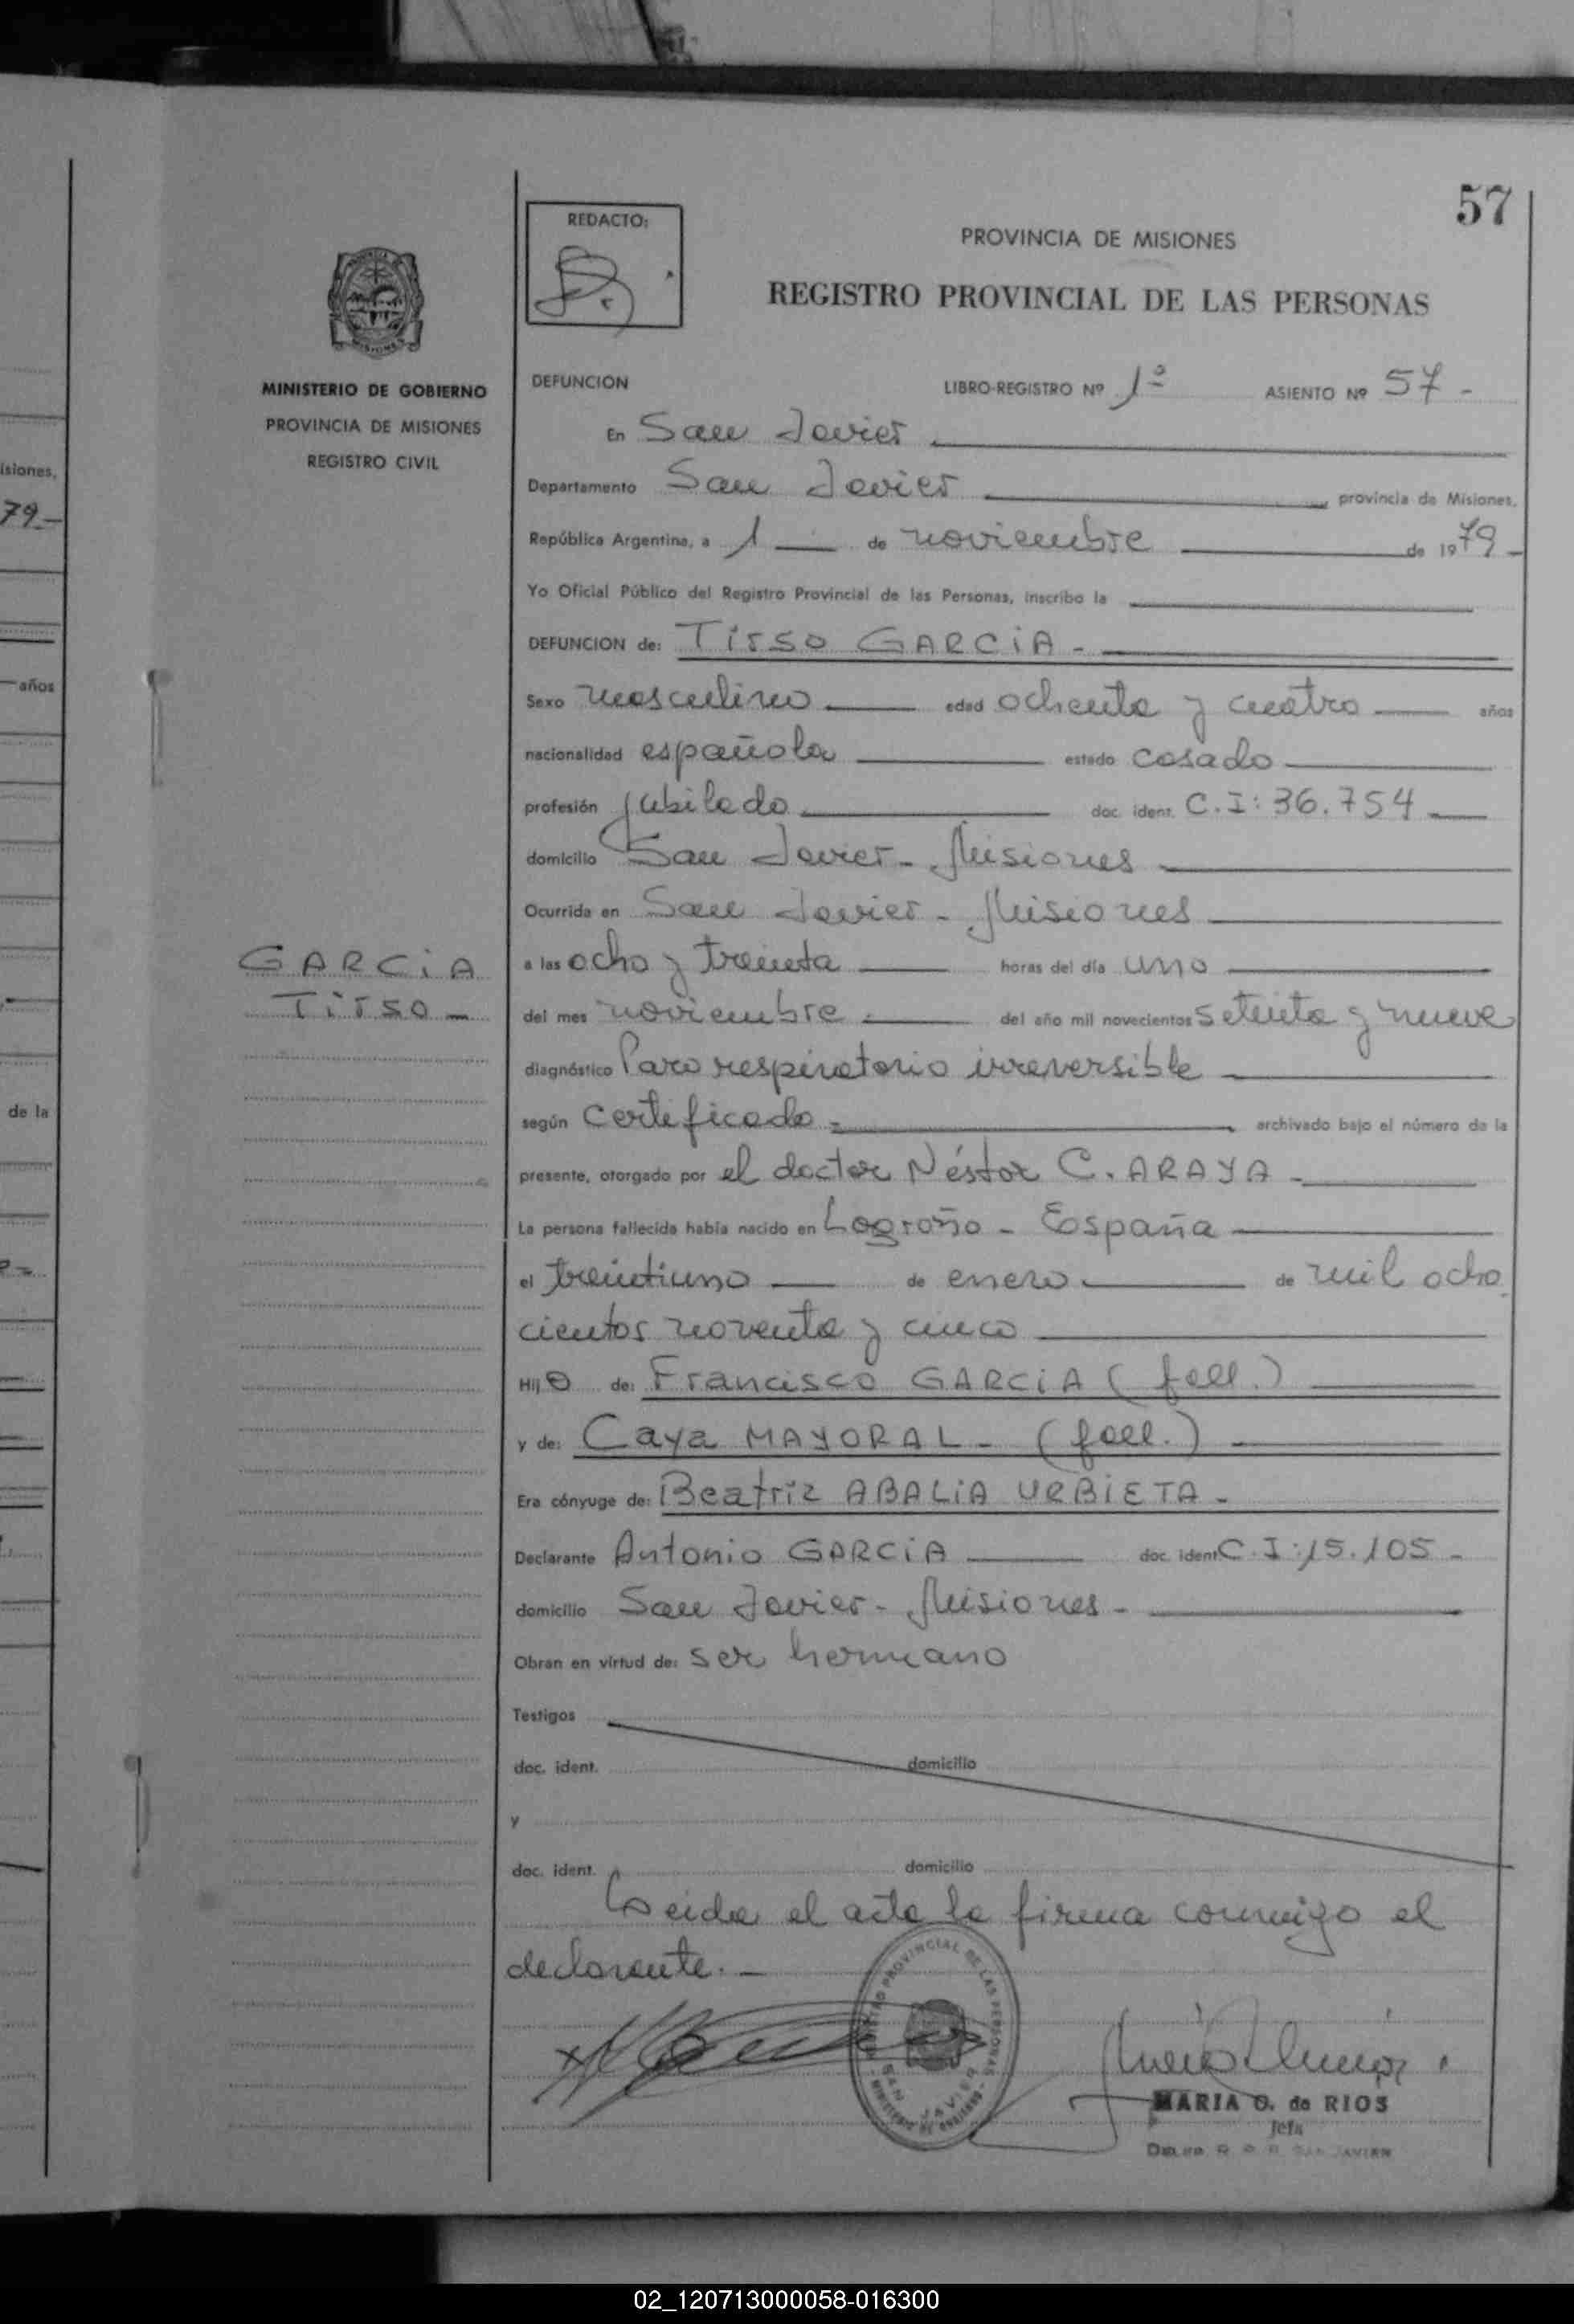 57
REDACTO:
PROVINCIA DE MISIONES
REGISTRO PROVINCIAL DE LAS PERSONAS
MINISTERIO DE GOBIERNO
PROVINCIA DE MISIONES
REGISTRO CIVIL
DEFUNCION LIBRO-REGISTRO Nº 1º ASIENTO Nº 57 -
En San Javier
Departamento San Javier, provincia de Misiones,
República Argentina, a 1 de noviembre de 1979 -
Yo Oficial Público del Registro Provincial de las Personas, inscribo la
DEFUNCION de: Tirso GARCIA -
Sexo masculino edad ochenta y cuatro años
nacionalidad española estado casado
profesión jubilado doc. ident. C.I: 36.754
domicilio San Javier - Misiones
Ocurrida en San Javier - Misiones
a las ocho y treinta horas del día uno
del mes noviembre del año mil novecientos setenta y nueve
diagnóstico Paro respiratorio irreversible
según certificado archivado bajo el número de la
presente, otorgado por el doctor Néstor C. ARAYA -
La persona fallecida había nacido en Logroño - España
el treintiuno de enero de mil ocho
cientos noventa y cinco
Hijo de: Francisco GARCIA (fall.)
y de: Caya MAYORAL - (fall.)
Era cónyuge de: Beatriz ABALIA URBIETA -
Declarante Antonio GARCIA doc. ident C.I: 15.105 -
domicilio San Javier - Misiones -
Obran en virtud de: ser hermano
Testigos
doc. ident. domicilio
y
doc. ident. domicilio
Leida el acta la firma conmigo el
declarante. -
GARCIA
Tirso -
REGISTRO PROVINCIAL DE LAS PERSONAS
SAN JAVIER
MINISTERIO DE GOBIERNO
MARIA O. de RIOS
Jefa
isiones,
79.-
años
de la
02_120713000058-016300